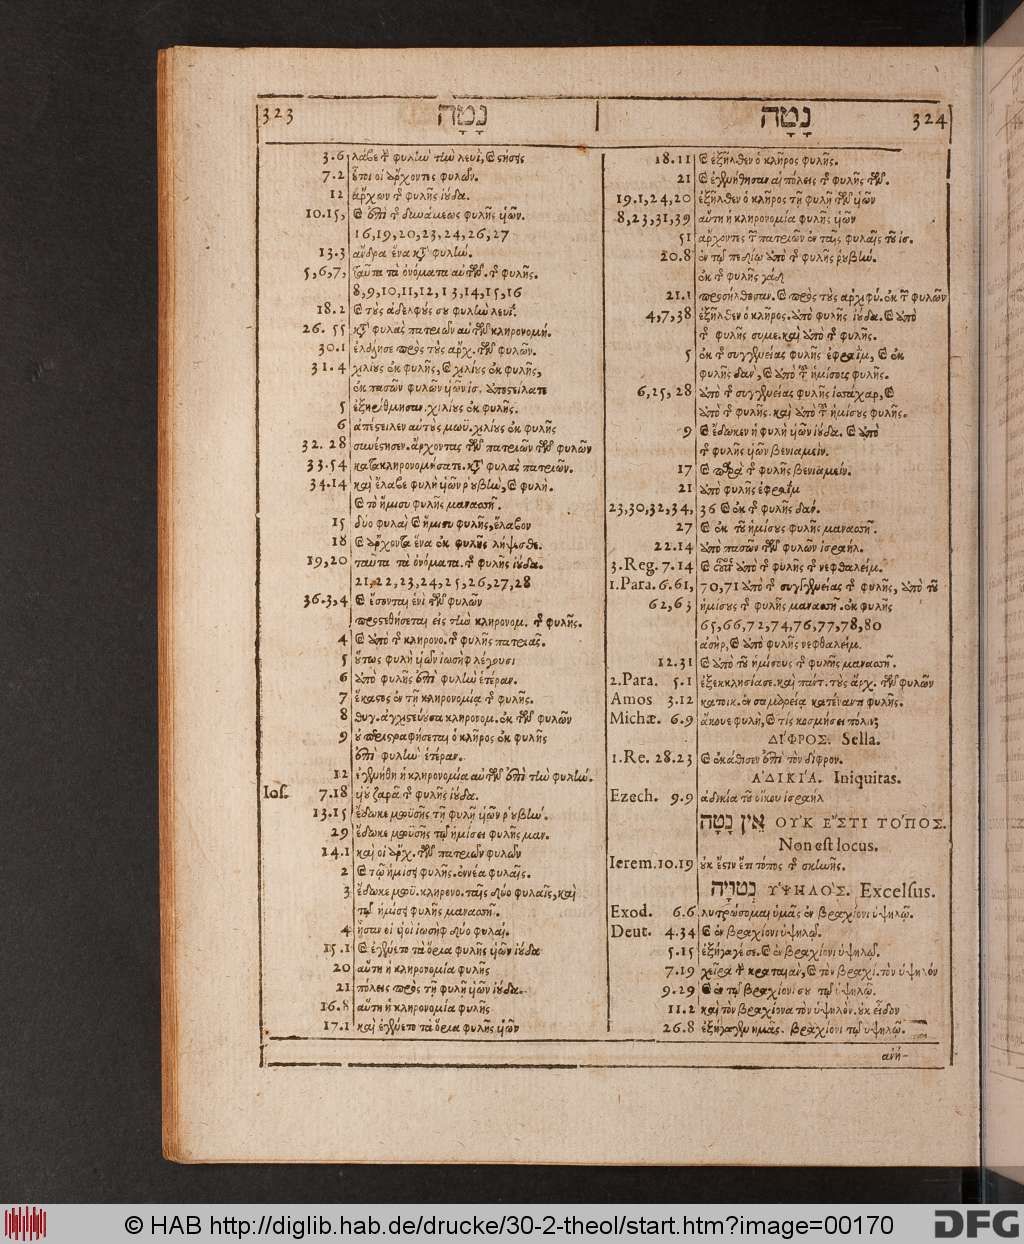 323 נָטָה
3.6 λάβε τ φυλὼ τὼ λευὶ, ϗ στήσεις
7.2 οὗτοι οἱ ἄρχοντες φυλῶν.
12 ἄρχων τ φυλῆς ἰούδα.
10.15, ϗ ἐπὶ τ δυνάμεως φυλῆς υἱῶν.
16,19,20,23,24,26,27
13.3 ἄνδρα ἕνα κτ φυλὼ.
5,6,7, ταῦτα τὰ ὀνόματα αὐτῶν. τ φυλῆς.
8,9,10,11,12,13,14,15,16
18.2 ϗ τοὺς ἀδελφούς σου φυλὼ λευΐ.
26. 55 κτ φυλὰς πατριῶν αὐτῶν κληρονομή.
30.1 ἐλάλησε πρὸς τοὺς ἄρχ. τῶν φυλῶν.
31.4 χιλίους ἐκ φυλῆς, ϗ χιλίους ἐκ φυλῆς,
ἐκ πασῶν φυλῶν υἱῶν ἰσ. ἀποστείλατε
5 ἐξηρίθμησαν. χιλίους ἐκ φυλῆς.
6 ἀπέστειλεν αὐτοὺς μωϋ. χιλίους ἐκ φυλῆς
32. 28 συνέστησεν. ἄρχοντας τῶν πατριῶν τῶν φυλῶν
33.54 κατακληρονομήσατε. κτ φυλὰς πατριῶν.
34.14 καὶ ἔλαβε φυλὴ υἱῶν ρουβὼ, ϗ φυλὴ.
ϗ τὸ ἥμισυ φυλῆς μανασσῆ.
15 δύο φυλαὶ ϗ ἥμισυ φυλῆς, ἔλαβον
18 ϗ ἄρχοντα ἕνα ἐκ φυλῆς λήψεσθε.
19,20 ταῦτα τὰ ὀνόματα. τ φυλῆς ἰούδα.
21,22,23,24,25,26,27,28
36.3,4 ϗ ἔσονται ἑνὶ τῶν φυλῶν
προστεθήσεται εἰς τὼ κληρονομ. τ φυλῆς.
4 ϗ ἀπὸ τ κληρονο. τ φυλῆς πατριᾶς.
5 οὕτως φυλὴ υἱῶν ἰωσὴφ λέγουσι
6 ἀπὸ φυλῆς ἐπὶ φυλὼ ἑτέραν.
7 ἕκαστος ἐν τῇ κληρονομία τ φυλῆς.
8 θυγ. ἀγχιστεύουσα κληρονομ. ἐκ τῶν φυλῶν
9 οὐ περιστραφήσεται ὁ κλῆρος ἐκ φυλῆς
ἐπὶ φυλὼ ἑτέραν.
12 ἐγενήθη ἡ κληρονομία αὐτῶν ἐπὶ τὼ φυλὼ.
Ios. 7.18 υἱοῦ ζαρᾶ τ φυλῆς ἰούδα.
13.15 ἔδωκε μωϋσῆς τῇ φυλῇ υἱῶν ῥουβὼ.
29 ἔδωκε μωϋσῆς τῷ ἡμίσει φυλῆς μαν.
14.1 καὶ οἱ ἄρχ. τῶν πατριῶν φυλῶν
2 ϗ τῷ ἡμίσει φυλῆς. ἐννέα φυλαῖς.
3 ἔδωκε μωϋ. κληρονο. ταῖς δύο φυλαῖς, καὶ
τῷ ἡμίσει φυλῆς μανασσῆ.
4 ἦσαν οἱ υἱοὶ ἰωσὴφ δύο φυλαὶ.
15.1 ϗ ἐγένετο τὰ ὅρια φυλῆς υἱῶν ἰούδα
20 αὕτη ἡ κληρονομία φυλῆς
21 πόλεις πρὸς τῇ φυλῇ υἱῶν ἰούδα.
16.8 αὕτη ἡ κληρονομία φυλῆς
17.1 καὶ ἐγένετο τὰ ὅρια φυλῆς υἱῶν
נָטָה 324
18.11 ϗ ἐξῆλθεν ὁ κλῆρος φυλῆς.
21 ϗ ἐγενήθησαν αἱ πόλεις τ φυλῆς τῶν.
19.1,24,20 ἐξῆλθεν ὁ κλῆρος τῇ φυλῇ τῶν υἱῶν
8,23,31,39 αὕτη ἡ κληρονομία φυλῆς υἱῶν
51 ἄρχοντες τ πατριῶν ἐν ταῖς φυλαῖς τοῦ ἰσ.
20.8 ἐν τῷ πεδίω ἀπὸ τ φυλῆς ῥουβὼ.
ἐκ τ φυλῆς γάδ
21.1 προσήλθοσαν. ϗ πρὸς τοὺς ἀρχιφύ. ἐκ τ φυλῶν
4,7,38 ἐξῆλθεν ὁ κλῆρος. ἀπὸ φυλῆς ἰούδα. ϗ ἀπὸ
τ φυλῆς συμε. καὶ ἀπὸ τ φυλῆς.
5 ἐκ τ συγγενείας φυλῆς ἐφραΐμ, ϗ ἐκ
φυλῆς δαν, ϗ ἀπὸ τ ἡμίσους φυλῆς.
6,25,28 ἀπὸ τ συγγενείας φυλῆς ἰσσάχαρ, ϗ
ἀπὸ τ φυλῆς. καὶ ἀπὸ τ ἡμίσους φυλῆς.
9 ϗ ἔδωκεν ἡ φυλὴ υἱῶν ἰούδα. ϗ ἀπὸ
τ φυλῆς υἱῶν βενιαμεὶν.
17 ϗ παρὰ τ φυλῆς βενιαμείν.
21 ἀπὸ φυλῆς ἐφραΐμ
23,30,32,34, 36 ϗ ἐκ τ φυλῆς δάν.
27 ϗ ἐκ τοῦ ἡμίσους φυλῆς μανασσῆ.
22.14 ἀπὸ πασῶν τῶν φυλῶν ἰσραήλ.
3.Reg. 7.14 ϗ οὗτος ἀπὸ τ φυλῆς τ νεφθαλείμ.
1.Para. 6.61, 70,71 ἀπὸ τ συγγενείας τ φυλῆς, ἀπὸ τοῦ
62,63 ἡμίσους τ φυλῆς μανασσῆ. ἐκ φυλῆς
65,66,72,74,76,77,78,80
ἀσὴρ, ϗ ἀπὸ φυλῆς νεφθαλείμ.
12.31 ϗ ἀπὸ τοῦ ἡμίσους τ φυλῆς μανασσῆ.
2.Para. 5.1 ἐξεκκλησίασε. καὶ παντ. τοὺς ἄρχ. τῶν φυλῶν
Amos 3.12 κατοικ. ἐν σαμαρεία κατέναντι φυλῆς.
Michæ. 6.9 ἄκουε φυλὴ, ϗ τίς κοσμήσει πόλιν;
ΔΙΦΡΟΣ. Sella.
1.Re. 28.23 ϗ ἐκάθισεν ἐπὶ τὸν δίφρον.
ἈΔΙΚΙΆ. Iniquitas.
Ezech. 9.9 ἀδικία τοῦ οἴκου ἰσραὴλ
אֵין נָטָה ΟΥΚ ἜΣΤΙ ΤΌΠΟΣ.
Non est locus.
Ierem. 10.19 οὐκ ἔστιν ἔτι τόπος τ σκηνῆς.
נְטוּיָה ὙΨΗΛΌΣ. Excelsus.
Exod. 6.6 λυτρώσομαι ὑμᾶς ἐν βραχίονι ὑψηλῷ.
Deut. 4.34 ϗ ἐν βραχίονι ὑψηλῷ.
5.15 ἐξήγαγέ σε. ϗ ἐν βραχίονι ὑψηλῷ.
7.19 χεῖρα τ κραταιὰν, ϗ τὸν βραχί. τὸν ὑψηλόν
9.29 ϗ ἐν τῷ βραχίονί σου τῷ ὑψηλῷ.
11.2 καὶ τὸν βραχίονα τὸν ὑψηλόν. οὐκ εἶδον
26.8 ἐξήγαγεν ἡμᾶς. βραχίονι τῷ ὑψηλῷ.
ἀνή-
© HAB http://diglib.hab.de/drucke/30-2-theol/start.htm?image=00170
DFG